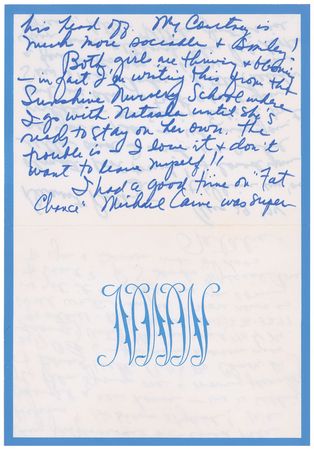 his head off. My Courtney is
much more sociable & smiley!
Both girls are thriving & blooming
– in fact I'm writing this from the
Sunshine Nursery School where
I go with Natasha until she's
ready to stay on her own. The
trouble is I love it & don't
want to leave myself!!
I had a good time on "Fat
Chance" Michael Caine was super